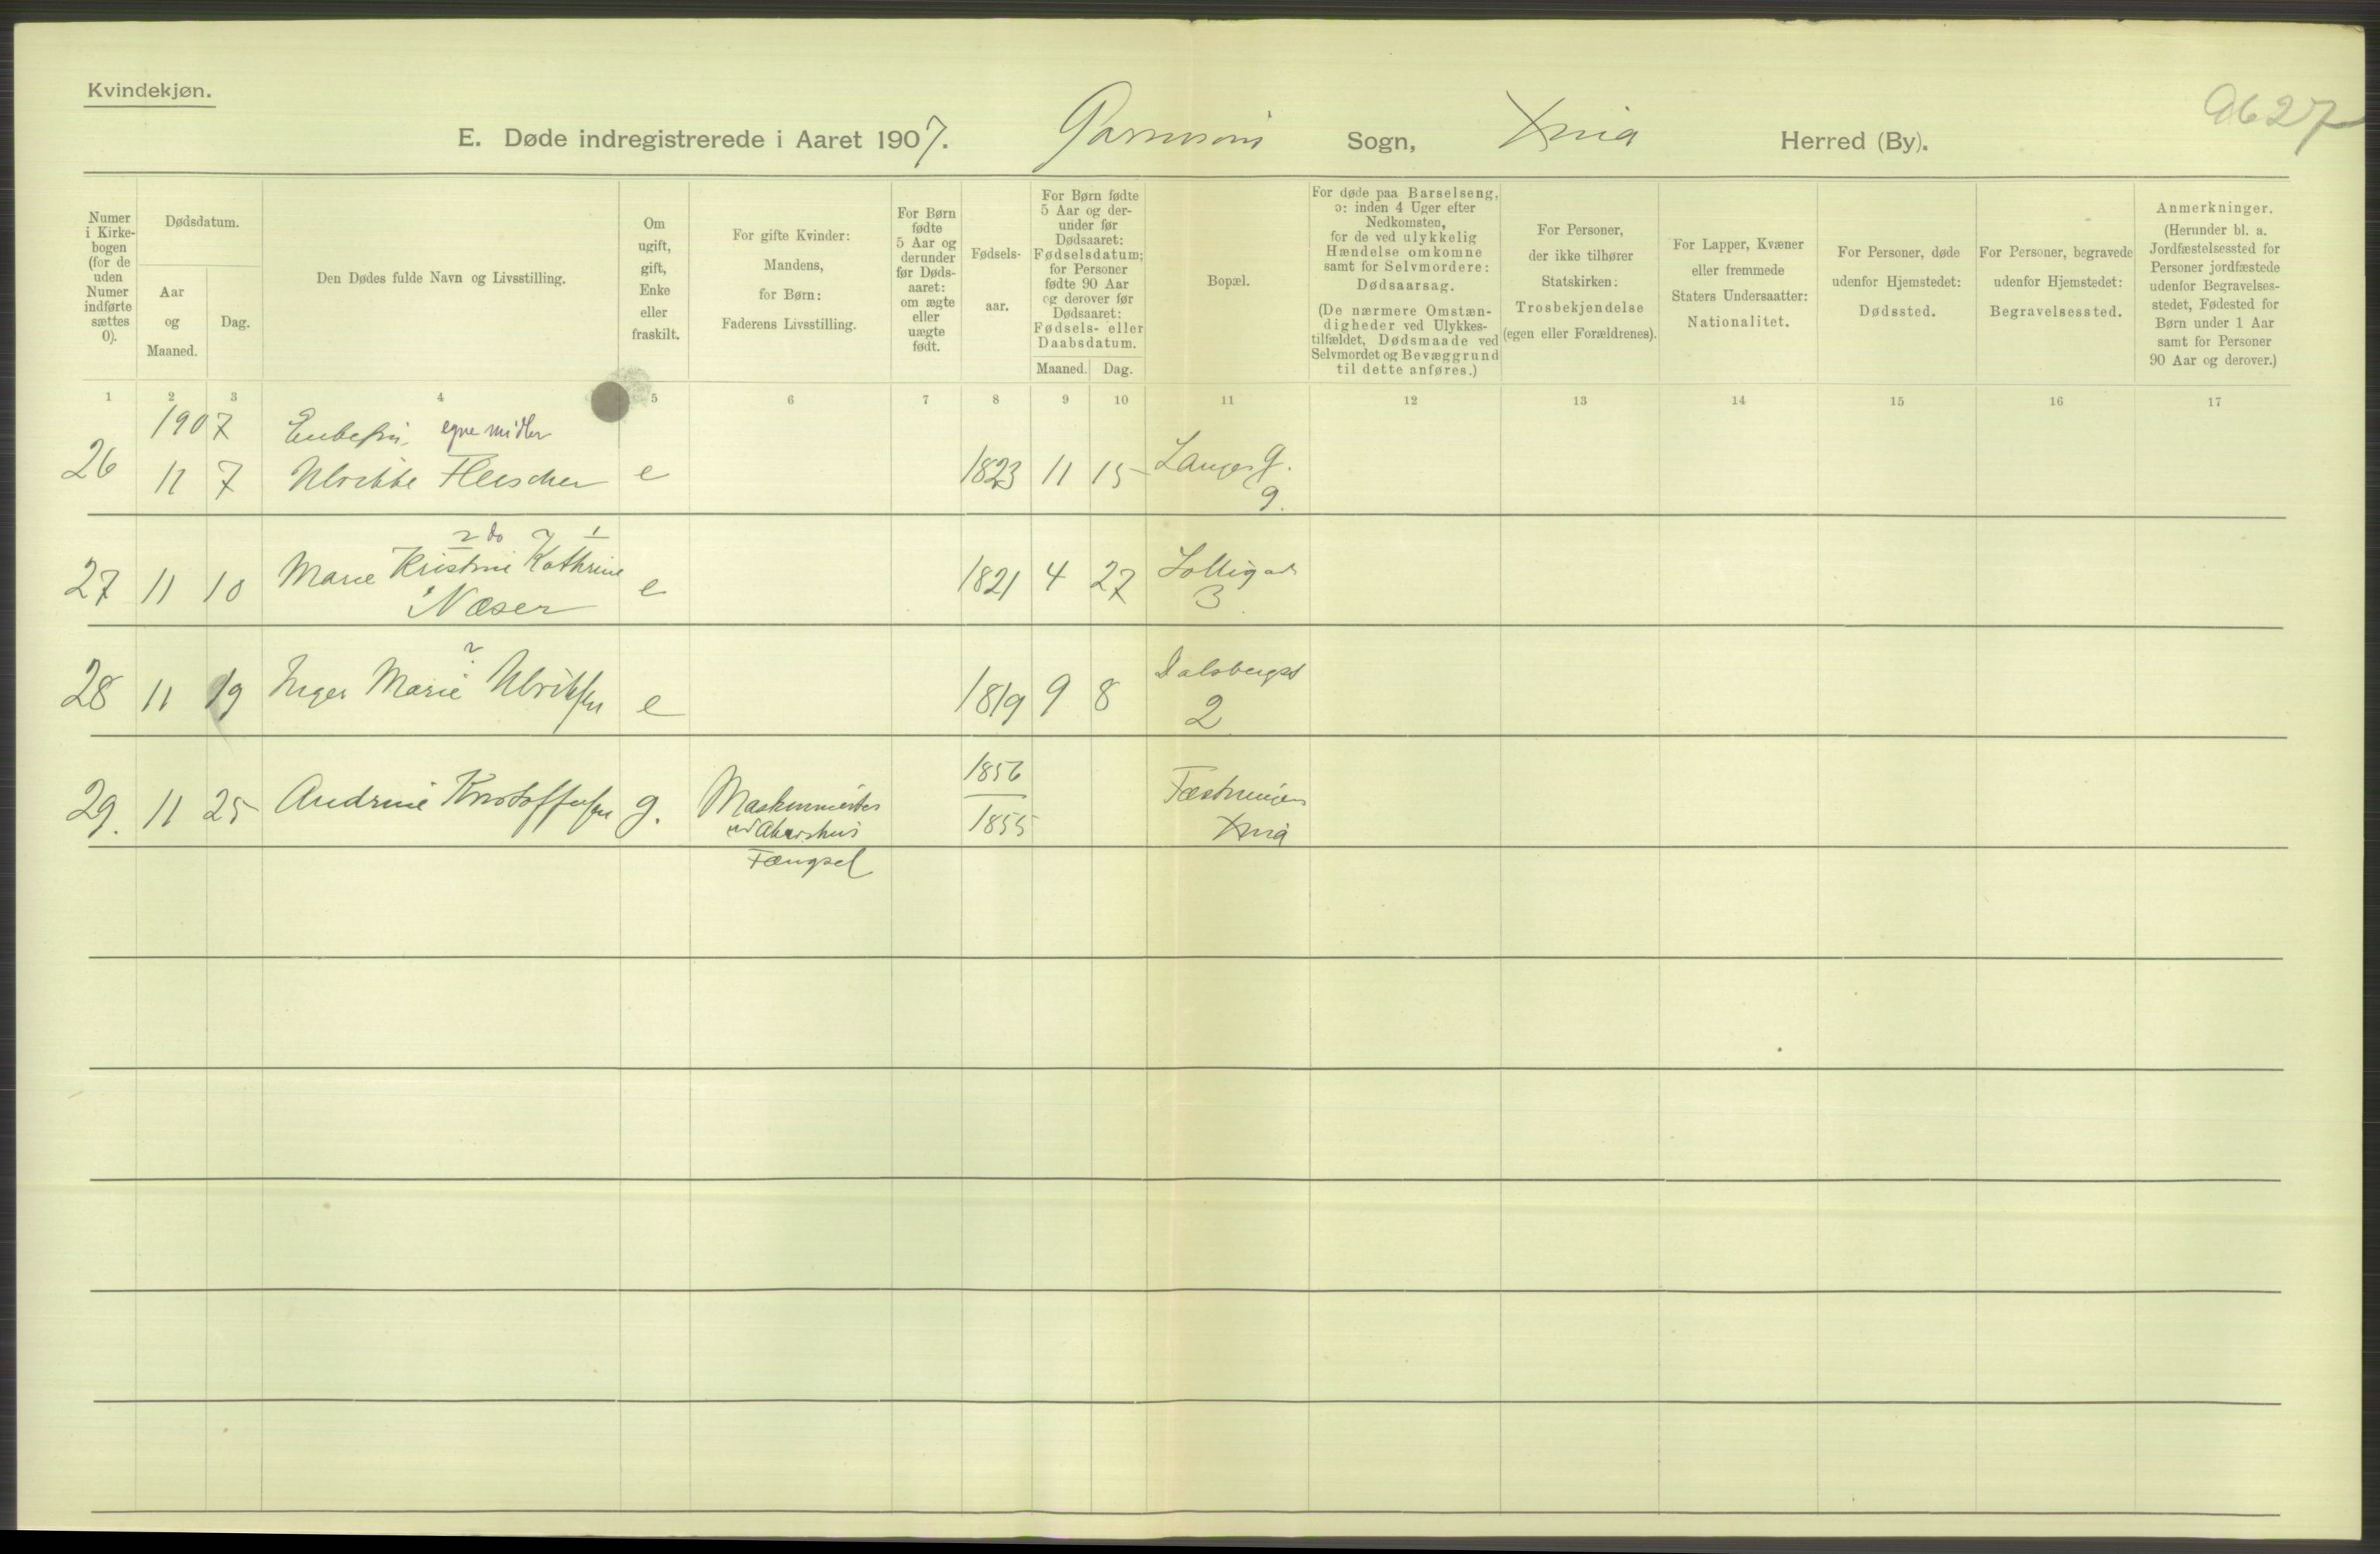 Kvindekjøn.
9627
E. Døde indregistrerede i Aaret 1907. Garnisons Sogn, Xnia Herred (By).
Numer i Kirke-bogen (for de uden Numer indførte sættes 0).
Dødsdatum.
Aar og Maaned.
Dag.
Den Dødes fulde Navn og Livsstilling.
Om ugift, gift, Enke eller fraskilt.
For gifte Kvinder: Mandens, for Børn: Faderens Livsstilling.
For Børn fødte 5 Aar og derunder før Døds-aaret: om ægte eller uægte født.
Fødsels-aar.
For Børn fødte 5 Aar og der-under før Dødsaaret: Fødselsdatum; for Personer fødte 90 Aar og derover før Dødsaaret: Fødsels- eller Daabsdatum.
Maaned. Dag.
Bopæl.
For døde paa Barselseng, ɔ: inden 4 Uger efter Nedkomsten, for de ved ulykkelig Hændelse omkomne samt for Selvmordere: Dødsaarsag.
(De nærmere Omstæn-digheder ved Ulykkes-tilfældet, Dødsmaade ved Selvmordet og Bevæggrund til dette anføres.)
For Personer, der ikke tilhører Statskirken: Trosbekjendelse (egen eller Forældrenes).
For Lapper, Kvæner eller fremmede Staters Undersaatter: Nationalitet.
For Personer, døde udenfor Hjemstedet: Dødssted.
For Personer, begravede udenfor Hjemstedet: Begravelsessted.
Anmerkninger. (Herunder bl. a. Jordfæstelsessted for Personer jordfæstede udenfor Begravelses-stedet, Fødested for Børn under 1 Aar samt for Personer 90 Aar og derover.)
1 2 3 4 5 6 7 8 9 10 11 12 13 14 15 16 17
1907 Enkefru. egne midler
26 11 7 Ulrikke Fleischer e 1823 11 15 Langes g.
9.
2 do 2 1
27 11 10 Marie Kristine Kathrine e 1821 4 27 Solligad
Næser 3
2
28 11 19 Inger Marie Ulriksen e 1819 9 8 Dalsbergst
2
29. 11 25 Andrine Kristoffersen g. Maskinmester 1856 Fæstningen
ved Akershus 1855 Xnia
Fængsel